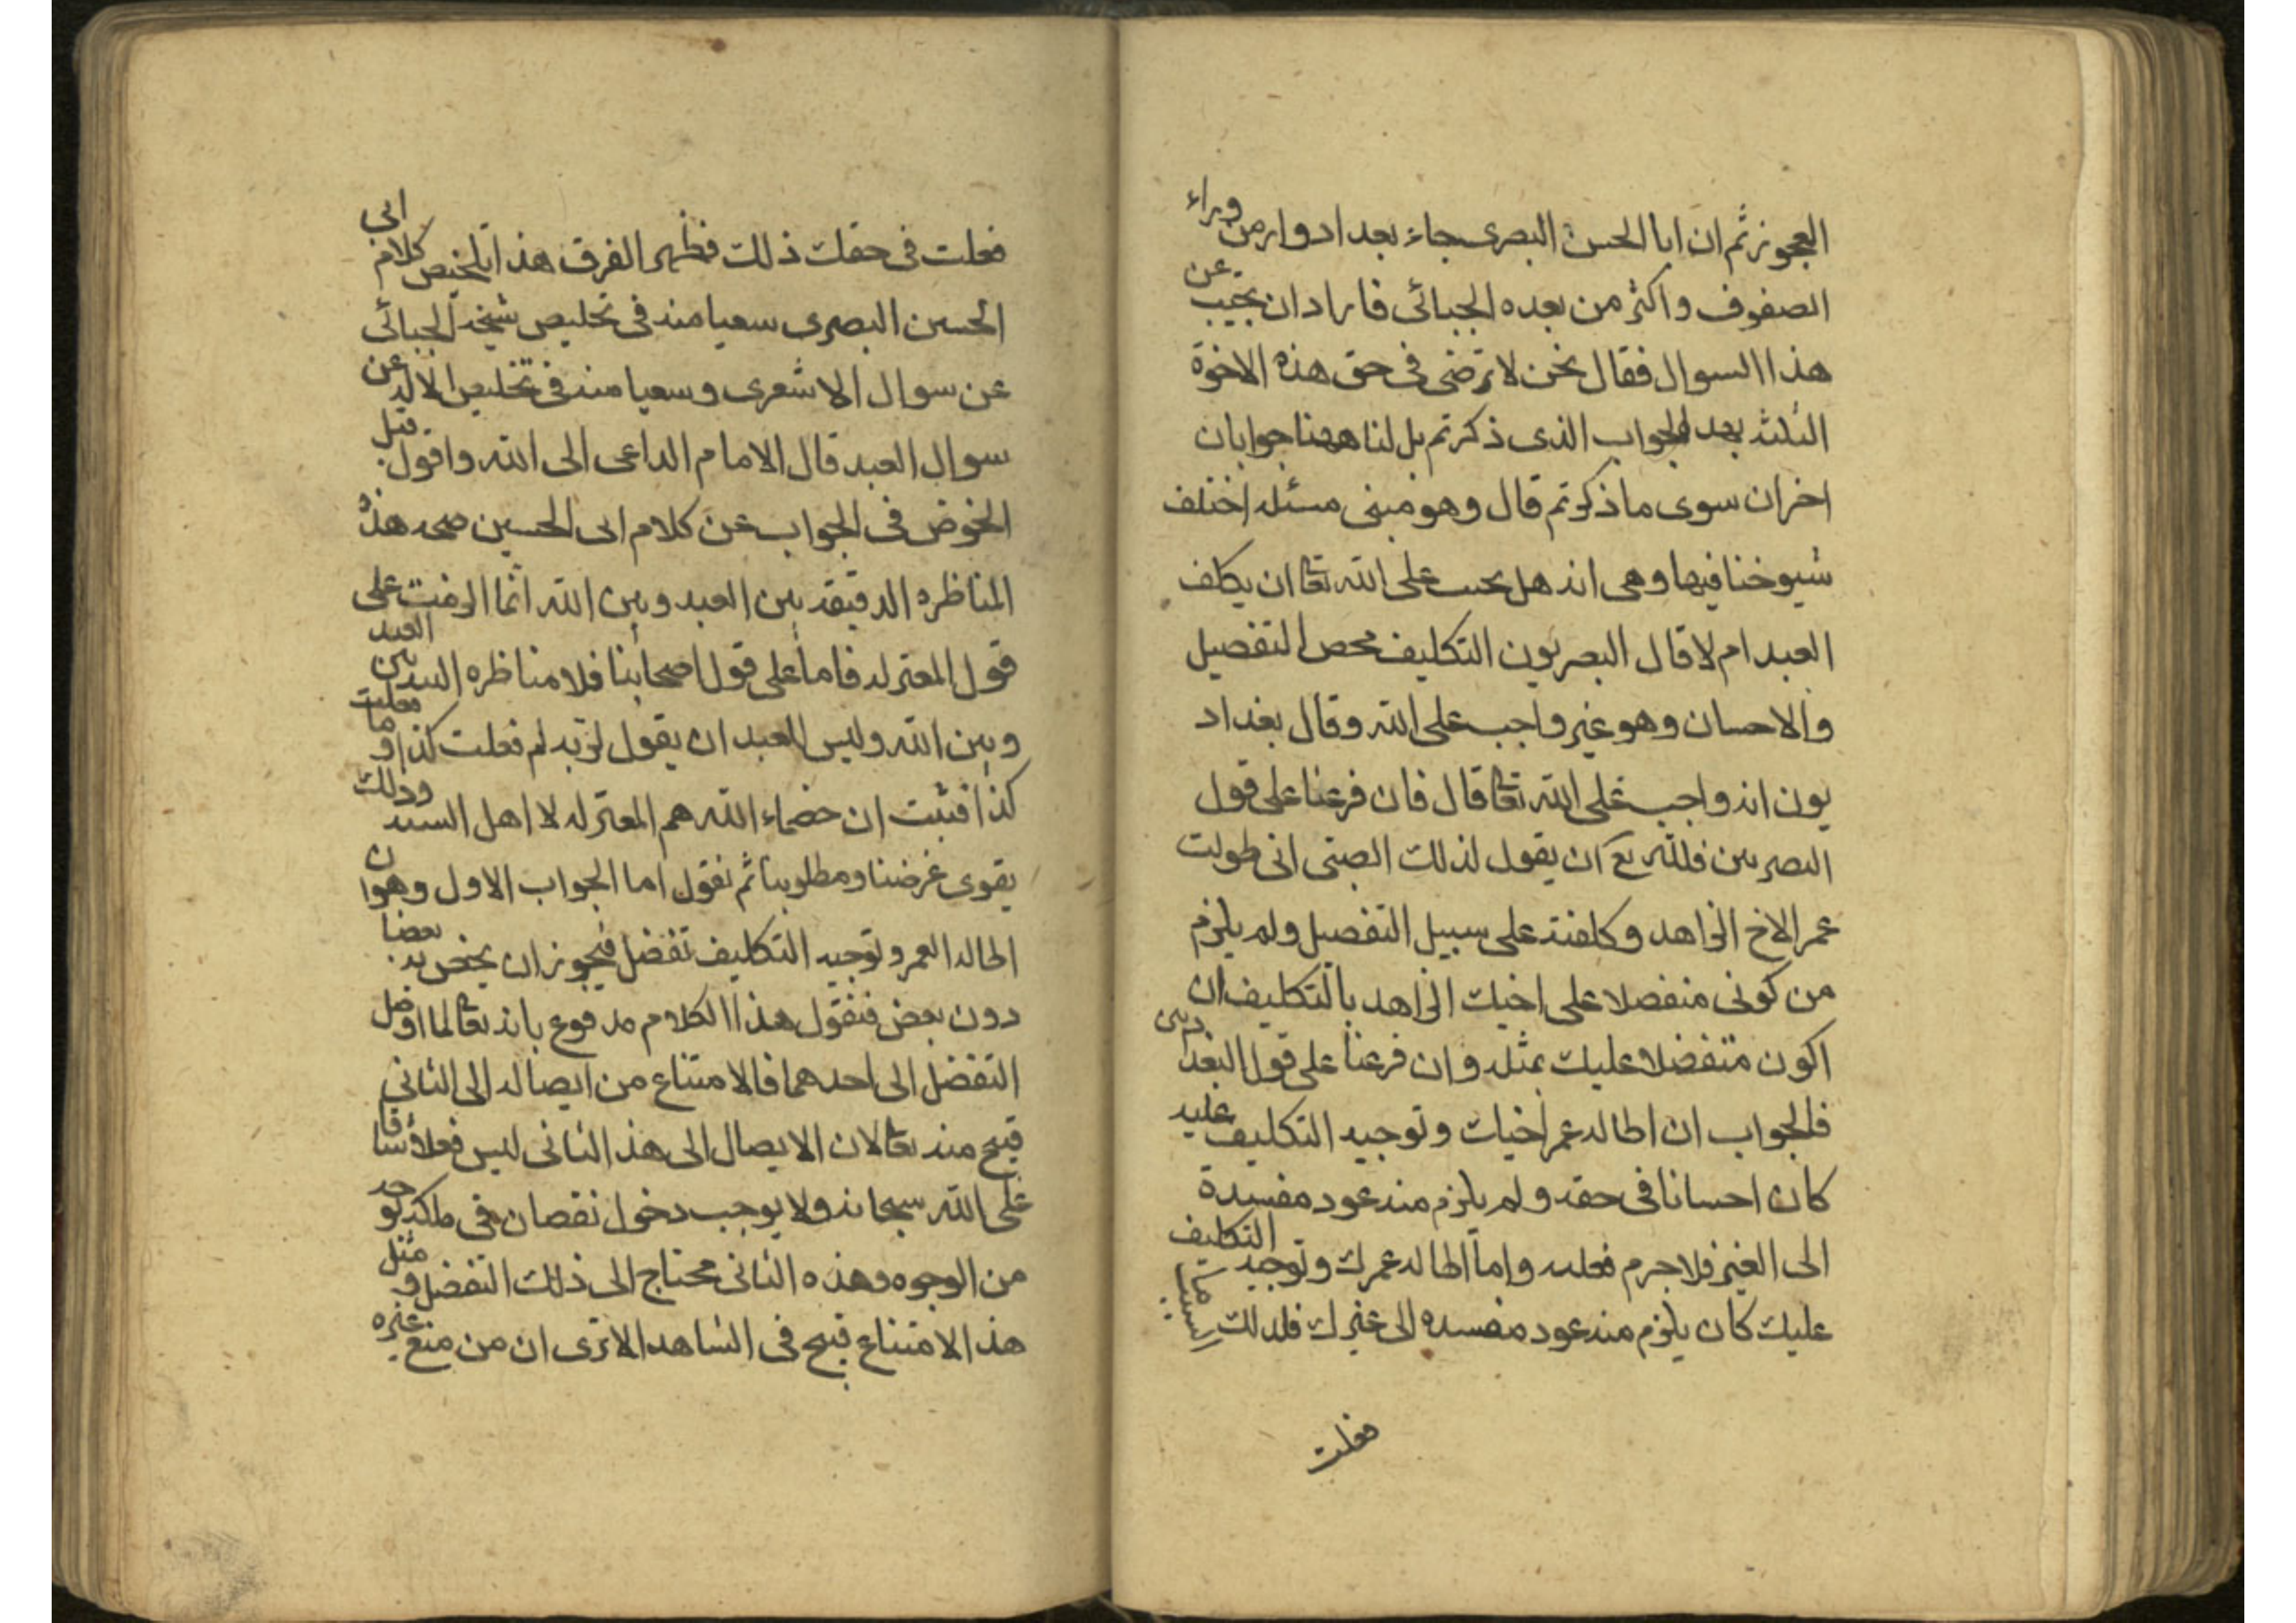 العجوز ثم ان ابا الحسن البصرى جاء بعد ادوار من وراء
الصفوف واكثر من بعده الجبائى فاراد ان يجيب عن
هذا السوال فقال نحن لا نرضى فى حق هذه الاخوة
الثلثه بهذا الجواب الذى ذكرتم بل لنا ههنا جوابان
اخران سوى ما ذكرتم قال وهو مبنى مسئله اختلف
شيوخنا فيها وهى انه هل يجب على الله تعا ان يكلف
العبد ام لا قال البصريون التكليف محص التفصيل
والاحسان وهو غير واجب على الله وقال بغداد
يون انه واجب على الله تعا قال فان فرعنا على قول
البصريين فلله تع ان يقول لذلك الصبى انى طولت
عمر الاخ الزاهد وكلفته على سبيل التفصيل ولم يلزم
من كونى منفصلا على اخيك الزاهد بالتكليف ان
اكون متفضلا عليك بمثله وان فرعنا على قول البغد ديين
فالجواب ان اطاله عمر اخيك وتوجيه التكليف عليه
كان احسانا فى حقه ولم يلزم منه عود مفسدة
الى الغير فلا جرم فعلته واما اطاله عمرك وتوجيه التكليف
عليك كان يلزم منه عود مفسده الى غيرك فلذلك ما
فعلت
فعلت فى حقك ذلك فظهر الفرق هذا تلخيص كلام ابى
الحسين البصرى سعيا منه فى تخليص شيخه الجبائى
عن سوال الاشعرى وسعيا منه فى تخليص الاله عن
سوال العبد قال الامام الداعى الى الله واقول قبل
الخوض فى الجواب عن كلام ابى الحسين صحه هذه
المناظره الدقيقه بين العبد وبين الله انما الزمت على
قول المعتزله فاما على قول اصحابنا فلا مناظره البته بين العبد
وبين الله وليس للعبد ان يقول لربه لم فعلت كذا وما فعلت
كذا فثبت ان خضماء الله هم المعتزله لا اهل السنه وذلك
يقوى غرضنا ومطلوبنا ثم نقول اما الجواب الاول وهو ان
اطاله العمر وتوجيه التكليف تفضل فيجوز ان يختص به بعضا
دون بعض فنقول هذا الكلام مدفوع بانه تعا لما اوصل
التفضل الى احدهما فالامتناع من ايصاله الى الثانى
قبيح منه تعا لان الايصال الى هذ الثانى ليس فعلا شاقا
على الله سبحانه ولا يوجب دخول نقصان فى ملكه بوجه
من الوجوه وهذه الثانى محتاج الى ذلك التفضل ومثل
هذ الامتناع قبيح فى الشاهد الا ترى ان من منع غيره